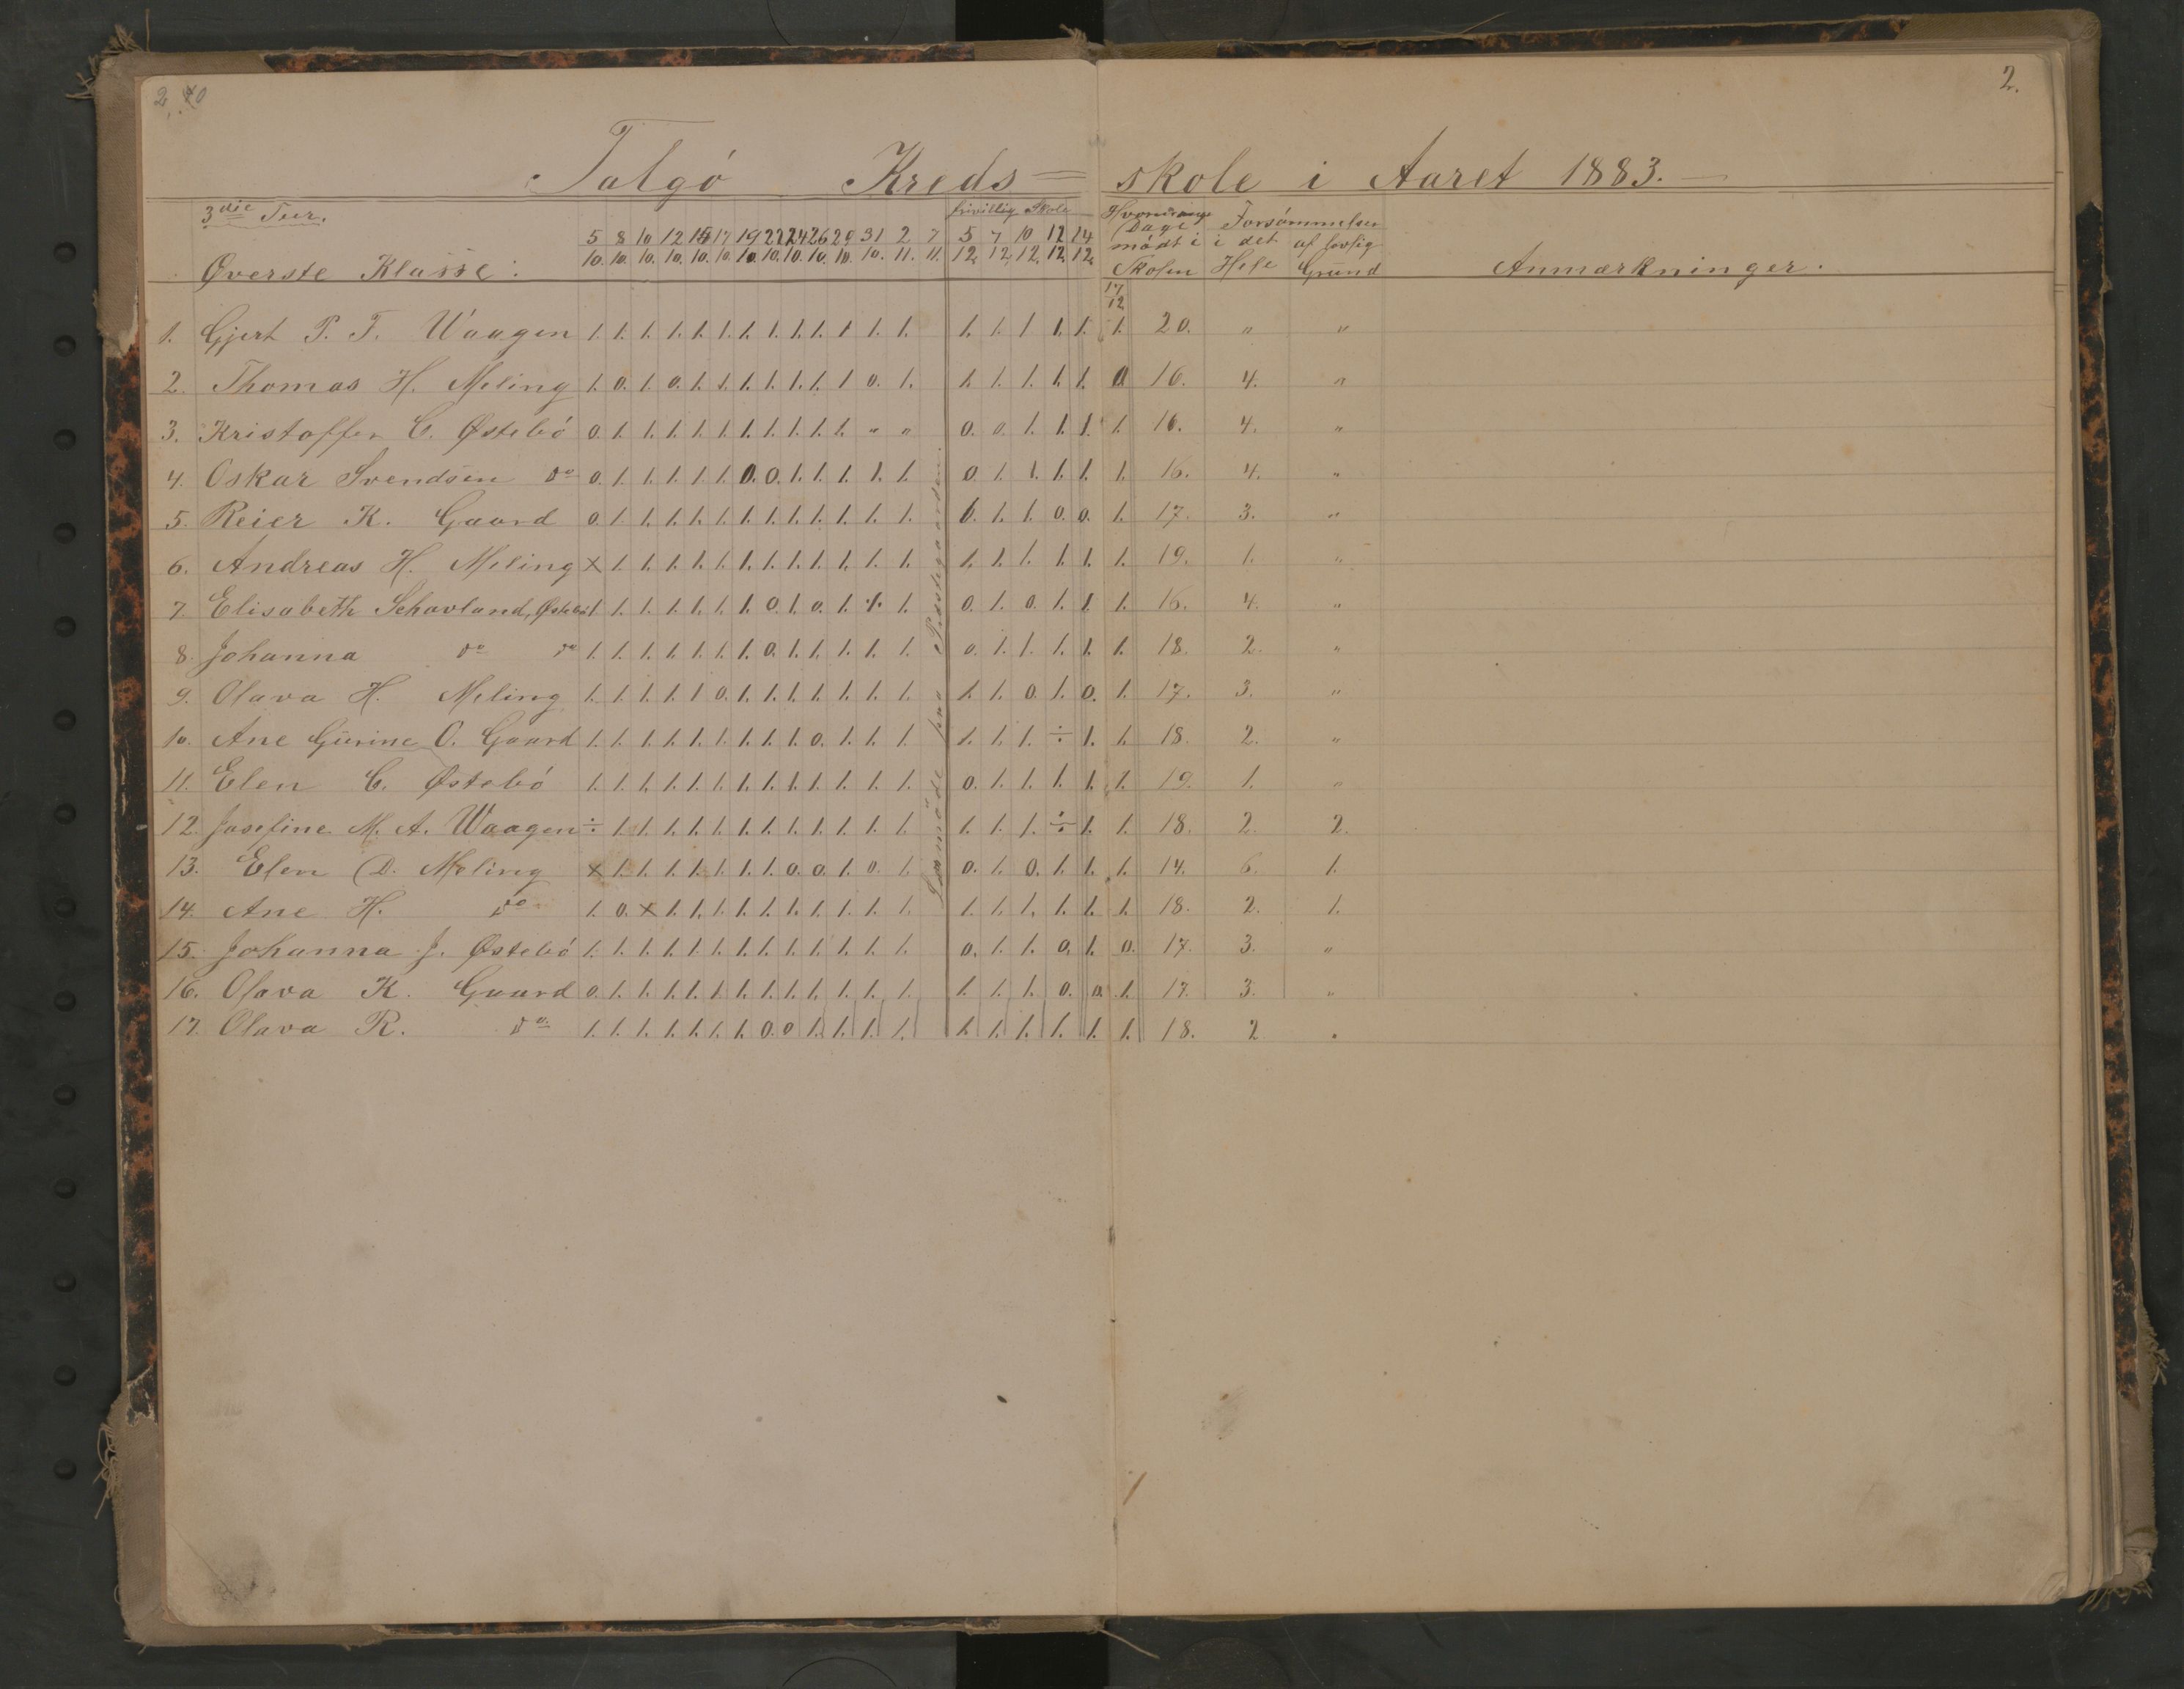 2.
Talgö Kreds= skole i Aaret 1883.
3die Tur.
frivillig Skole
Hvormange Dage mödt i Skolen
Forsömmelser
i det Hele
af lovlig Grund
Anmærkninger.
Øverste Klasse:
5 8 10 12 15 17 19 22 24 26 29 31 2 7 5 7 10 12 14
10. 10. 10. 10. 10. 10. 10. 10. 10. 10. 10. 10. 11. 11. 12. 12. 12. 12. 12.
17
12
Lærermöde paa Præstegaarden.
1. Gjert P. T. Waagen 1. 1. 1. 1. 1. 1. 1. 1. 1. 1. 1 1. 1. 1. 1. 1 1. 1. 1. 20. " "
2. Thomas H. Meling 1. 0. 1. 0. 1. 1. 1. 1. 1. 1. 1 0. 1. 1. 1. 1. 1. 1. 0 16. 4. "
3. Kristoffer C. Østebö 0. 1. 1. 1. 1. 1. 1. 1. 1. 1. 1. " " 0. 0. 1. 1. 1. 1. 16. 4. "
4. Oskar Svendsen do 0. 1. 1. 1. 1. 1. 0. 0. 1. 1. 1. 1. 1. 0. 1. 1. 1. 1. 1. 16. 4. "
5. Reier K. Gaard 0. 1. 1. 1. 1. 1. 1. 1. 1. 1. 1. 1. 1. 1. 1. 1. 0. 0. 1. 17. 3. "
6. Andreas H. Meling × 1. 1. 1. 1. 1. 1. 1. 1. 1. 1. 1. 1. 1. 1. 1. 1. 1. 1. 19. 1. "
7. Elisabeth Schavland, Østebö 1. 1. 1. 1. 1. 1. 1. 0. 1. 0. 1. 1. 1. 0. 1. 0. 1. 1. 1. 16. 4. "
8. Johanna do do 1. 1. 1. 1. 1. 1. 1. 0. 1. 1. 1. 1. 1. 0. 1. 1. 1. 1. 1. 18. 2. "
9. Olava H. Meling 1. 1. 1. 1. 1 0. 1. 1. 1. 1. 1. 1. 1. 1. 1. 0. 1. 0. 1. 17. 3. "
10. Ane Gurine O. Gaard 1. 1. 1. 1. 1. 1. 1. 1. 1. 0. 1. 1. 1. 1. 1. 1. ÷ 1. 1. 18. 2. "
11. Elen C. Østebö 1. 1. 1. 1. 1. 1. 1. 1. 1. 1. 1. 1. 1. 0. 1. 1. 1. 1. 1. 19. 1. "
12. Josefine M. A. Waagen ÷ 1. 1. 1. 1. 1. 1. 1. 1. 1. 1. 1. 1. 1. 1. 1. ÷ 1. 1. 18. 2. 2.
13. Elen D. Meling × 1. 1. 1. 1. 1. 1. 1. 0. 0. 1. 0. 1. 0. 1. 0. 1. 1. 1. 14. 6. 1.
14. Ane H. do 1. 0. × 1. 1. 1. 1. 1. 1. 1. 1. 1. 1. 1. 1. 1. 1. 1. 1. 18. 2. 1.
15. Johanna J. Østebö 1. 1. 1. 1. 1. 1. 1. 1. 1. 1. 1. 1. 1. 0. 1. 1. 0. 1. 0. 17. 3. "
16. Olava K. Gaard 0. 1. 1. 1. 1. 1. 1. 1. 1. 1. 1. 1. 1. 1. 1. 1. 0. 0. 1. 17. 3. "
17. Olava R. do 1. 1. 1. 1. 1. 1. 1. 0. 0 1. 1. 1. 1. 1. 1. 1. 1. 1. 1. 18. 2 "